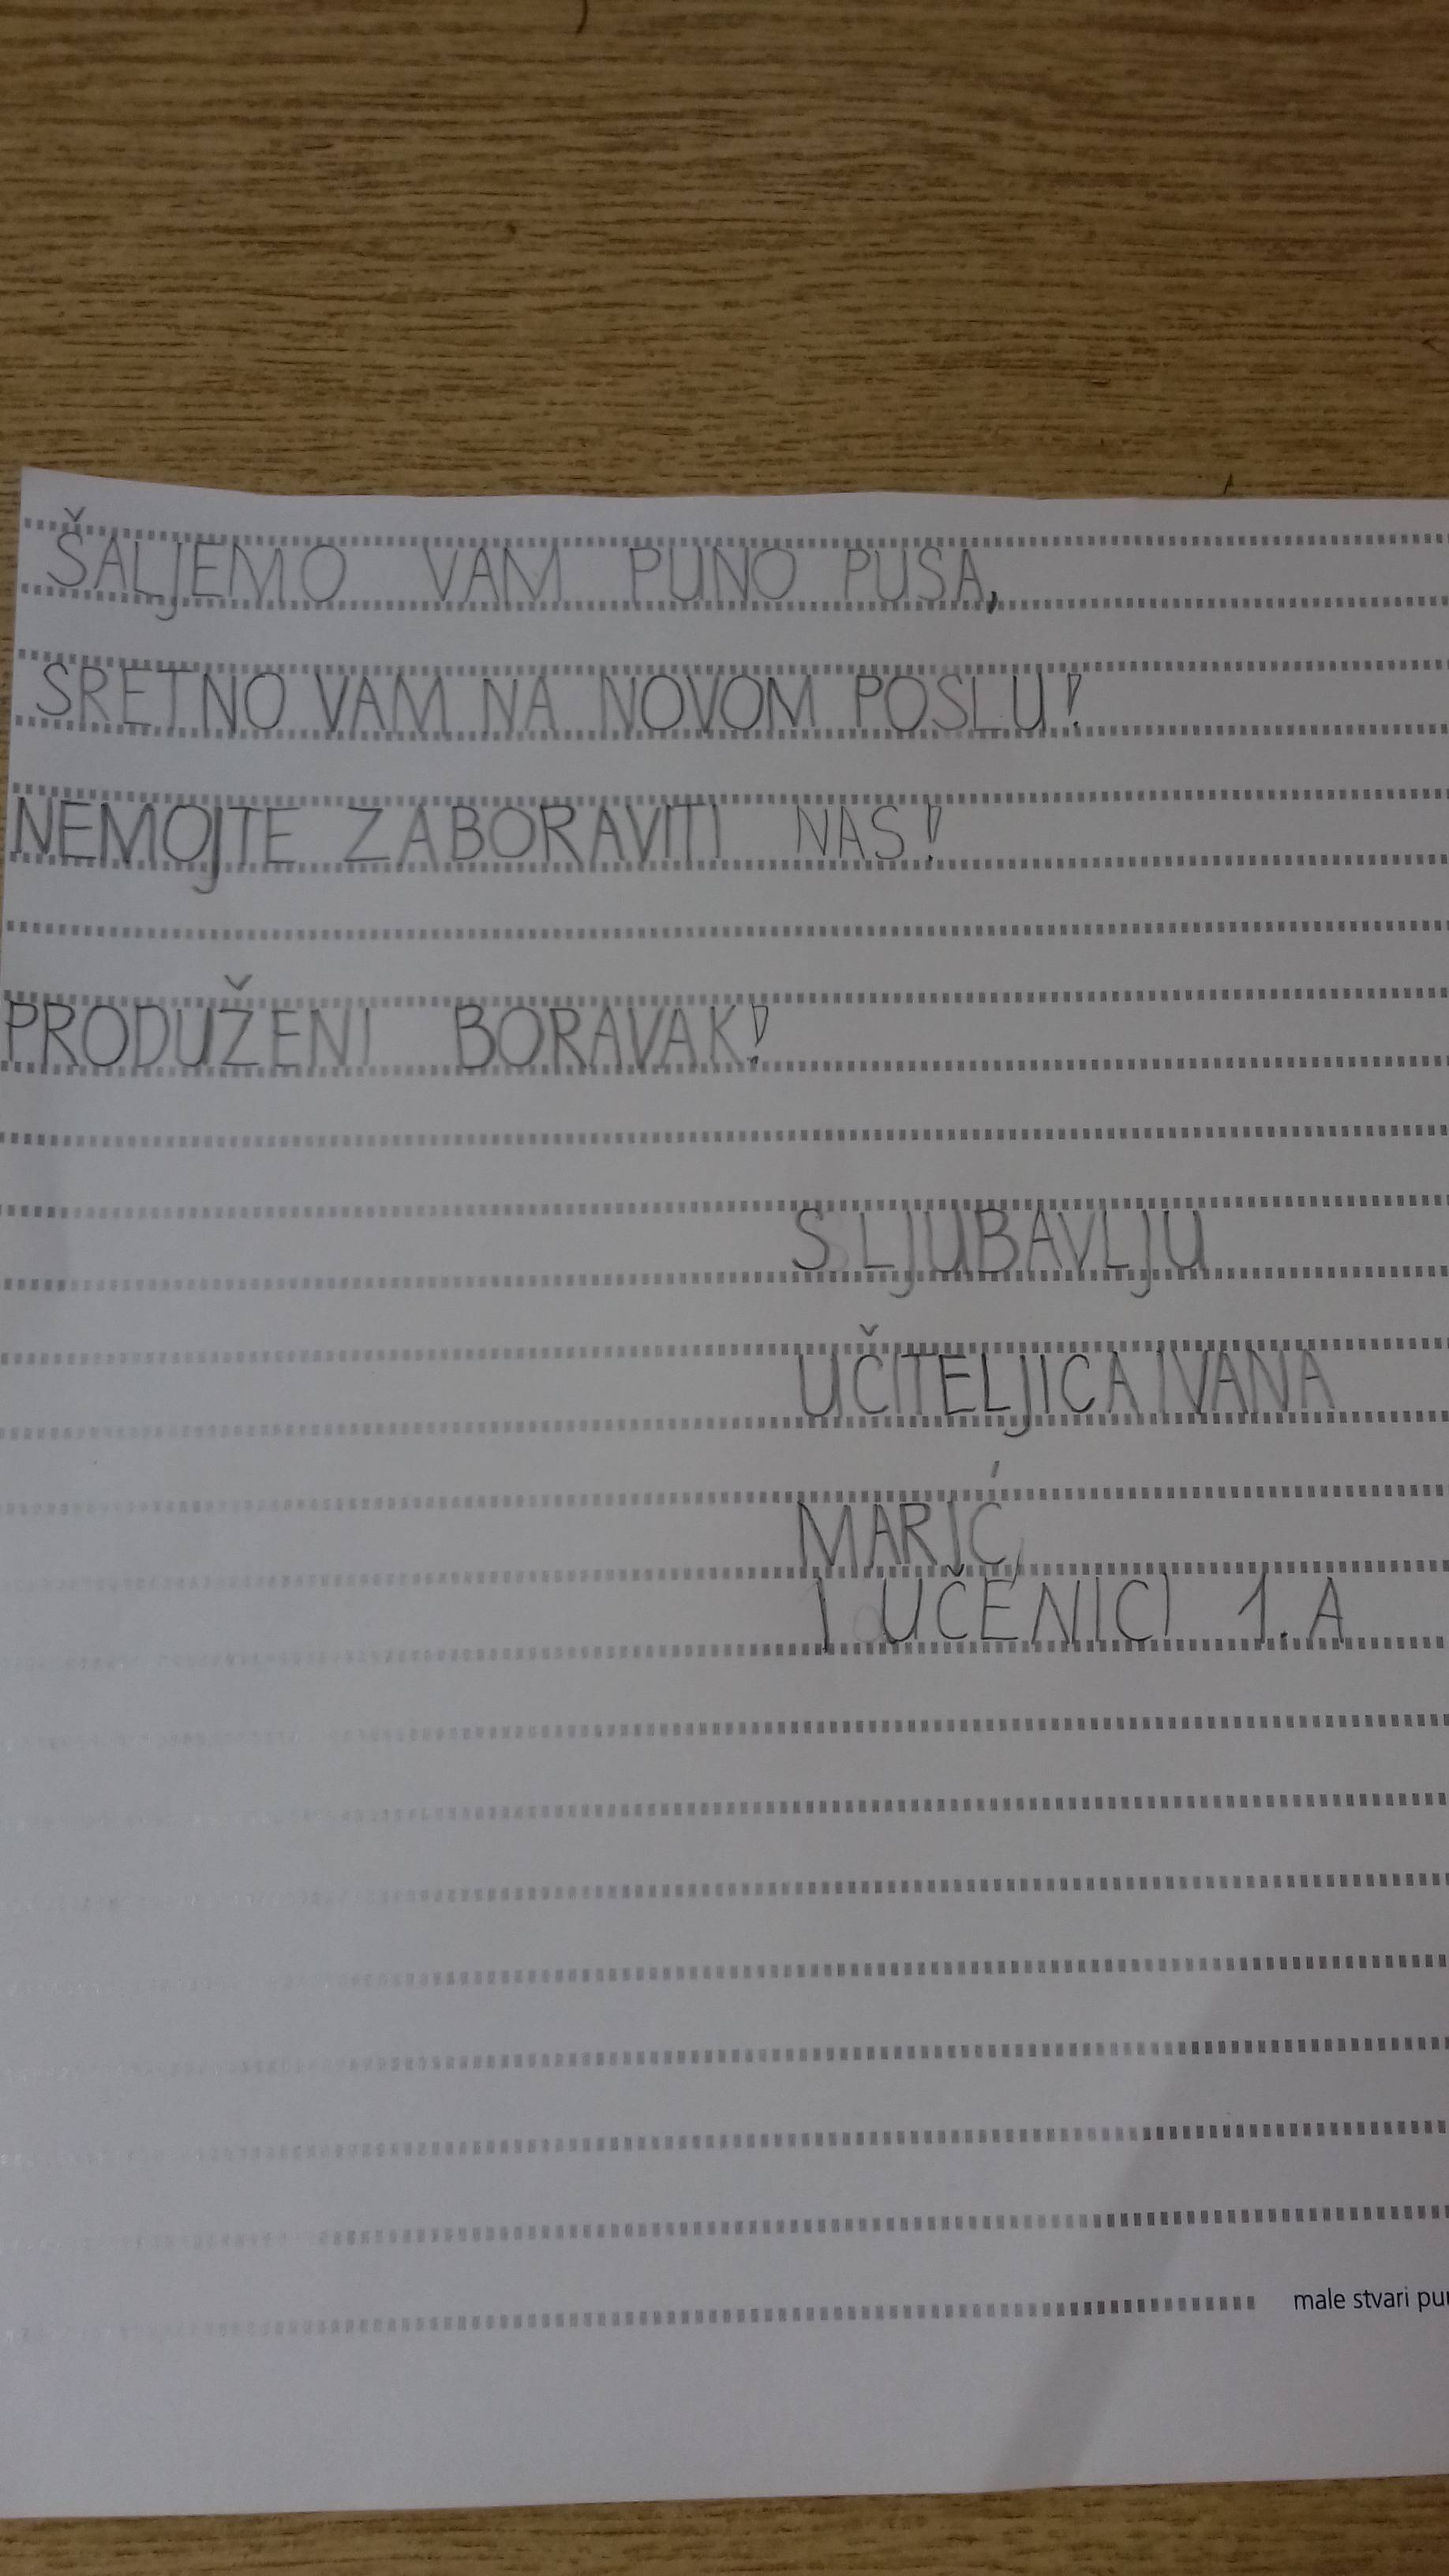 ŠALJEMO VAM PUNO PUSA,
SRETNO VAM NA NOVOM POSLU!
NEMOJTE ZABORAVITI NAS!
PRODUŽENI BORAVAK!
S LJUBAVLJU
UČITELJICA IVANA
MARIĆ,
I UČENICI 1. A
male stvari